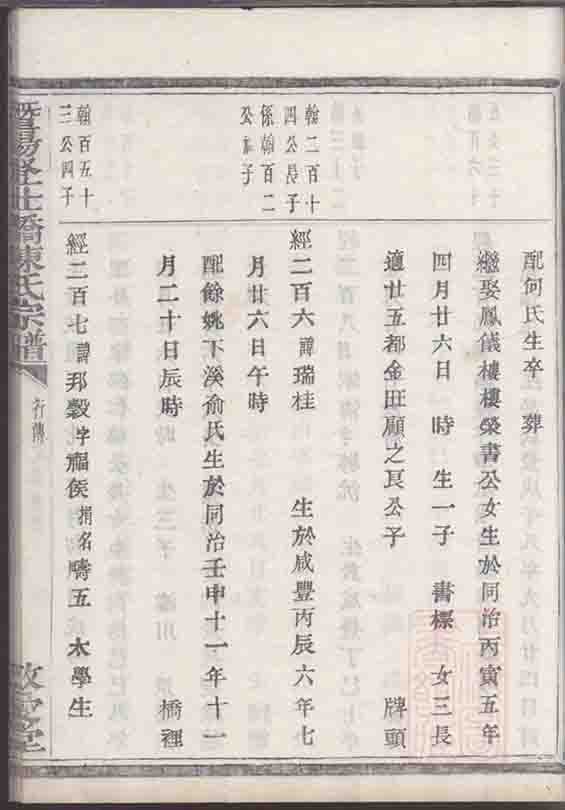 配何氏生卒 葬
繼娶鳳儀樓樓榮書公女生於同治丙寅五年
四月廿六日 時 生一子 書標 女三長
適廿五都金田顧之良公子 牌頭
翰二百十
四公長子
係翰百二
公子
經二百六諱瑞桂 生於咸豐丙辰六年七
月廿六日午時
配餘姚下溪俞氏生於同治壬申十一年十一
月二十日辰時 橋裡
翰百五十
三公四子
經二百七諱邦穀字福侯捐名疇五 太學生
暨陽 橋陳氏宗譜
行傳